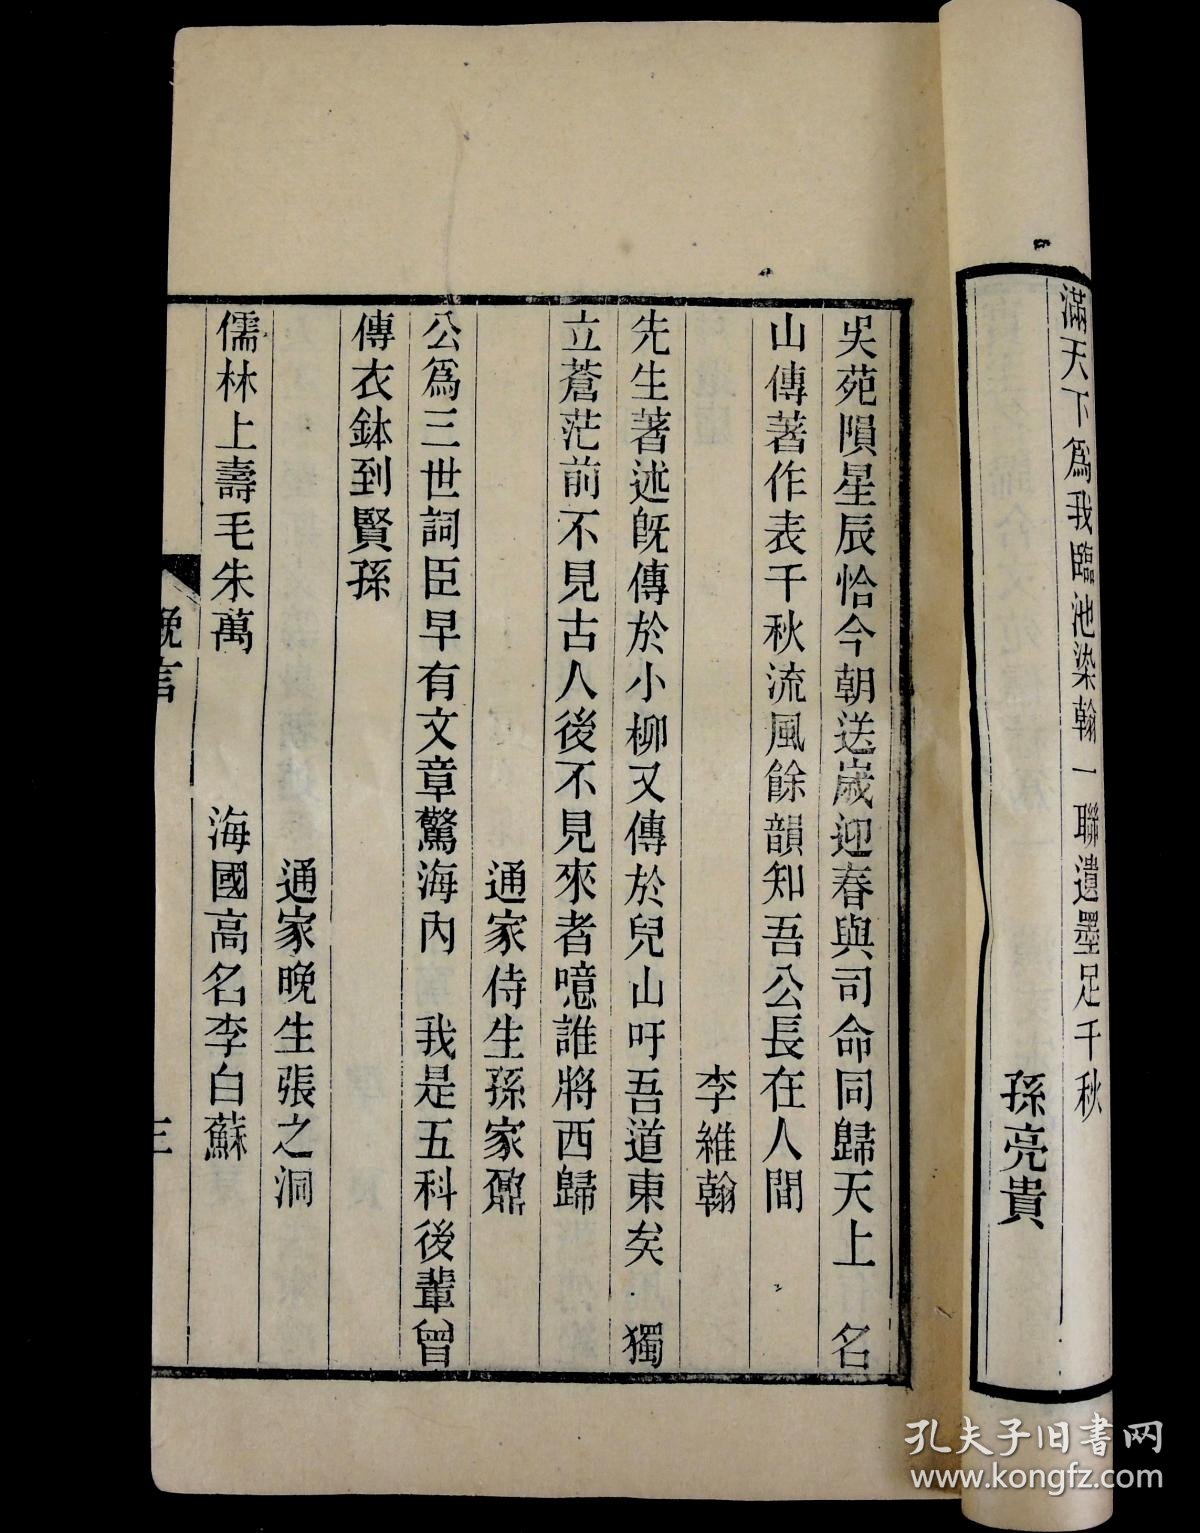 滿天下爲我臨池染翰一聯遺墨足千秋
孫亮貴
吳苑隕星辰恰今朝送歲迎春與司命同歸天上　名
山傳著作表千秋流風餘韻知吾公長在人間
李維翰
先生著述既傳於小柳又傳於兒山吁吾道東矣　獨
立蒼茫前不見古人後不見來者噫誰將西歸
通家侍生孫家鼐
公爲三世詞臣早有文章驚海內　我是五科後輩曾
傳衣鉢到賢孫
通家晚生張之洞
儒林上壽毛朱萬　海國高名李白蘇
輓言
三
孔夫子旧书网
www.kongfz.com